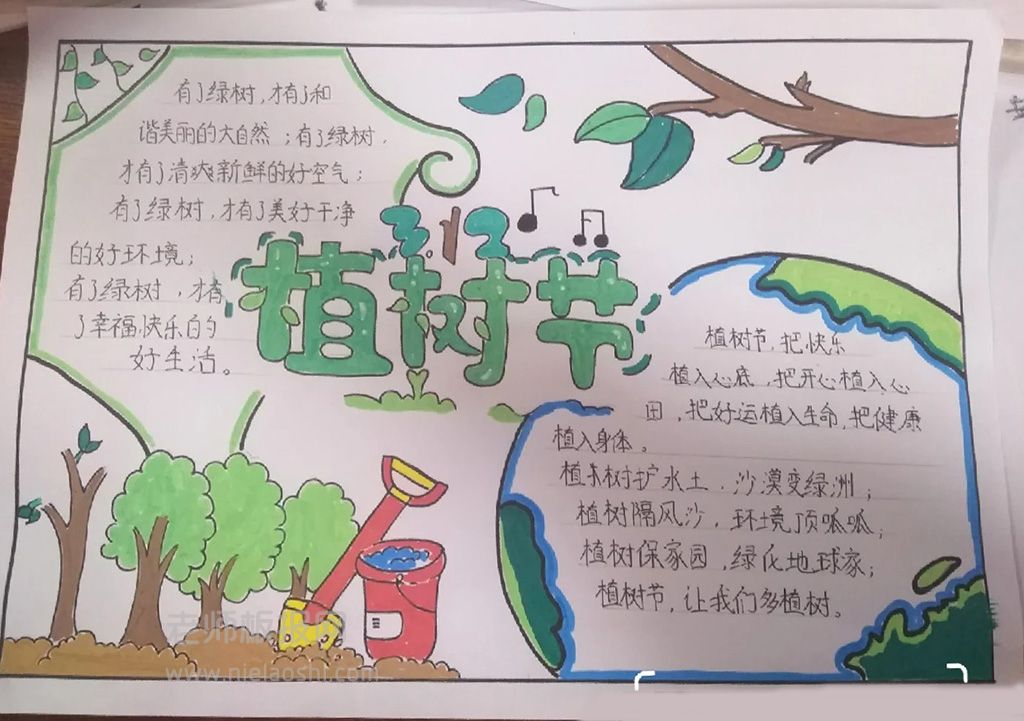 有了绿树，才有了和
谐美丽的大自然；有了绿树，
才有了清爽新鲜的好空气；
有了绿树，才有了美好干净
的好环境；
有了绿树，才有
了幸福快乐的
好生活。
3.12
植树节
植树节，把快乐
植入心底，把开心植入心
田，把好运植入生命，把健康
植入身体。
植树护水土，沙漠变绿洲；
植树隔风沙，环境顶呱呱；
植树保家园，绿化地球家；
植树节，让我们多植树。
老师板报网
www.nielaoshi.com